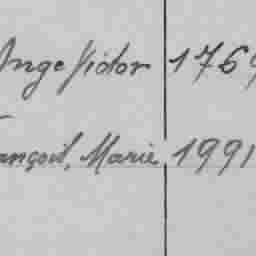 Ange Isidor 1769
ançois, Marie 1991